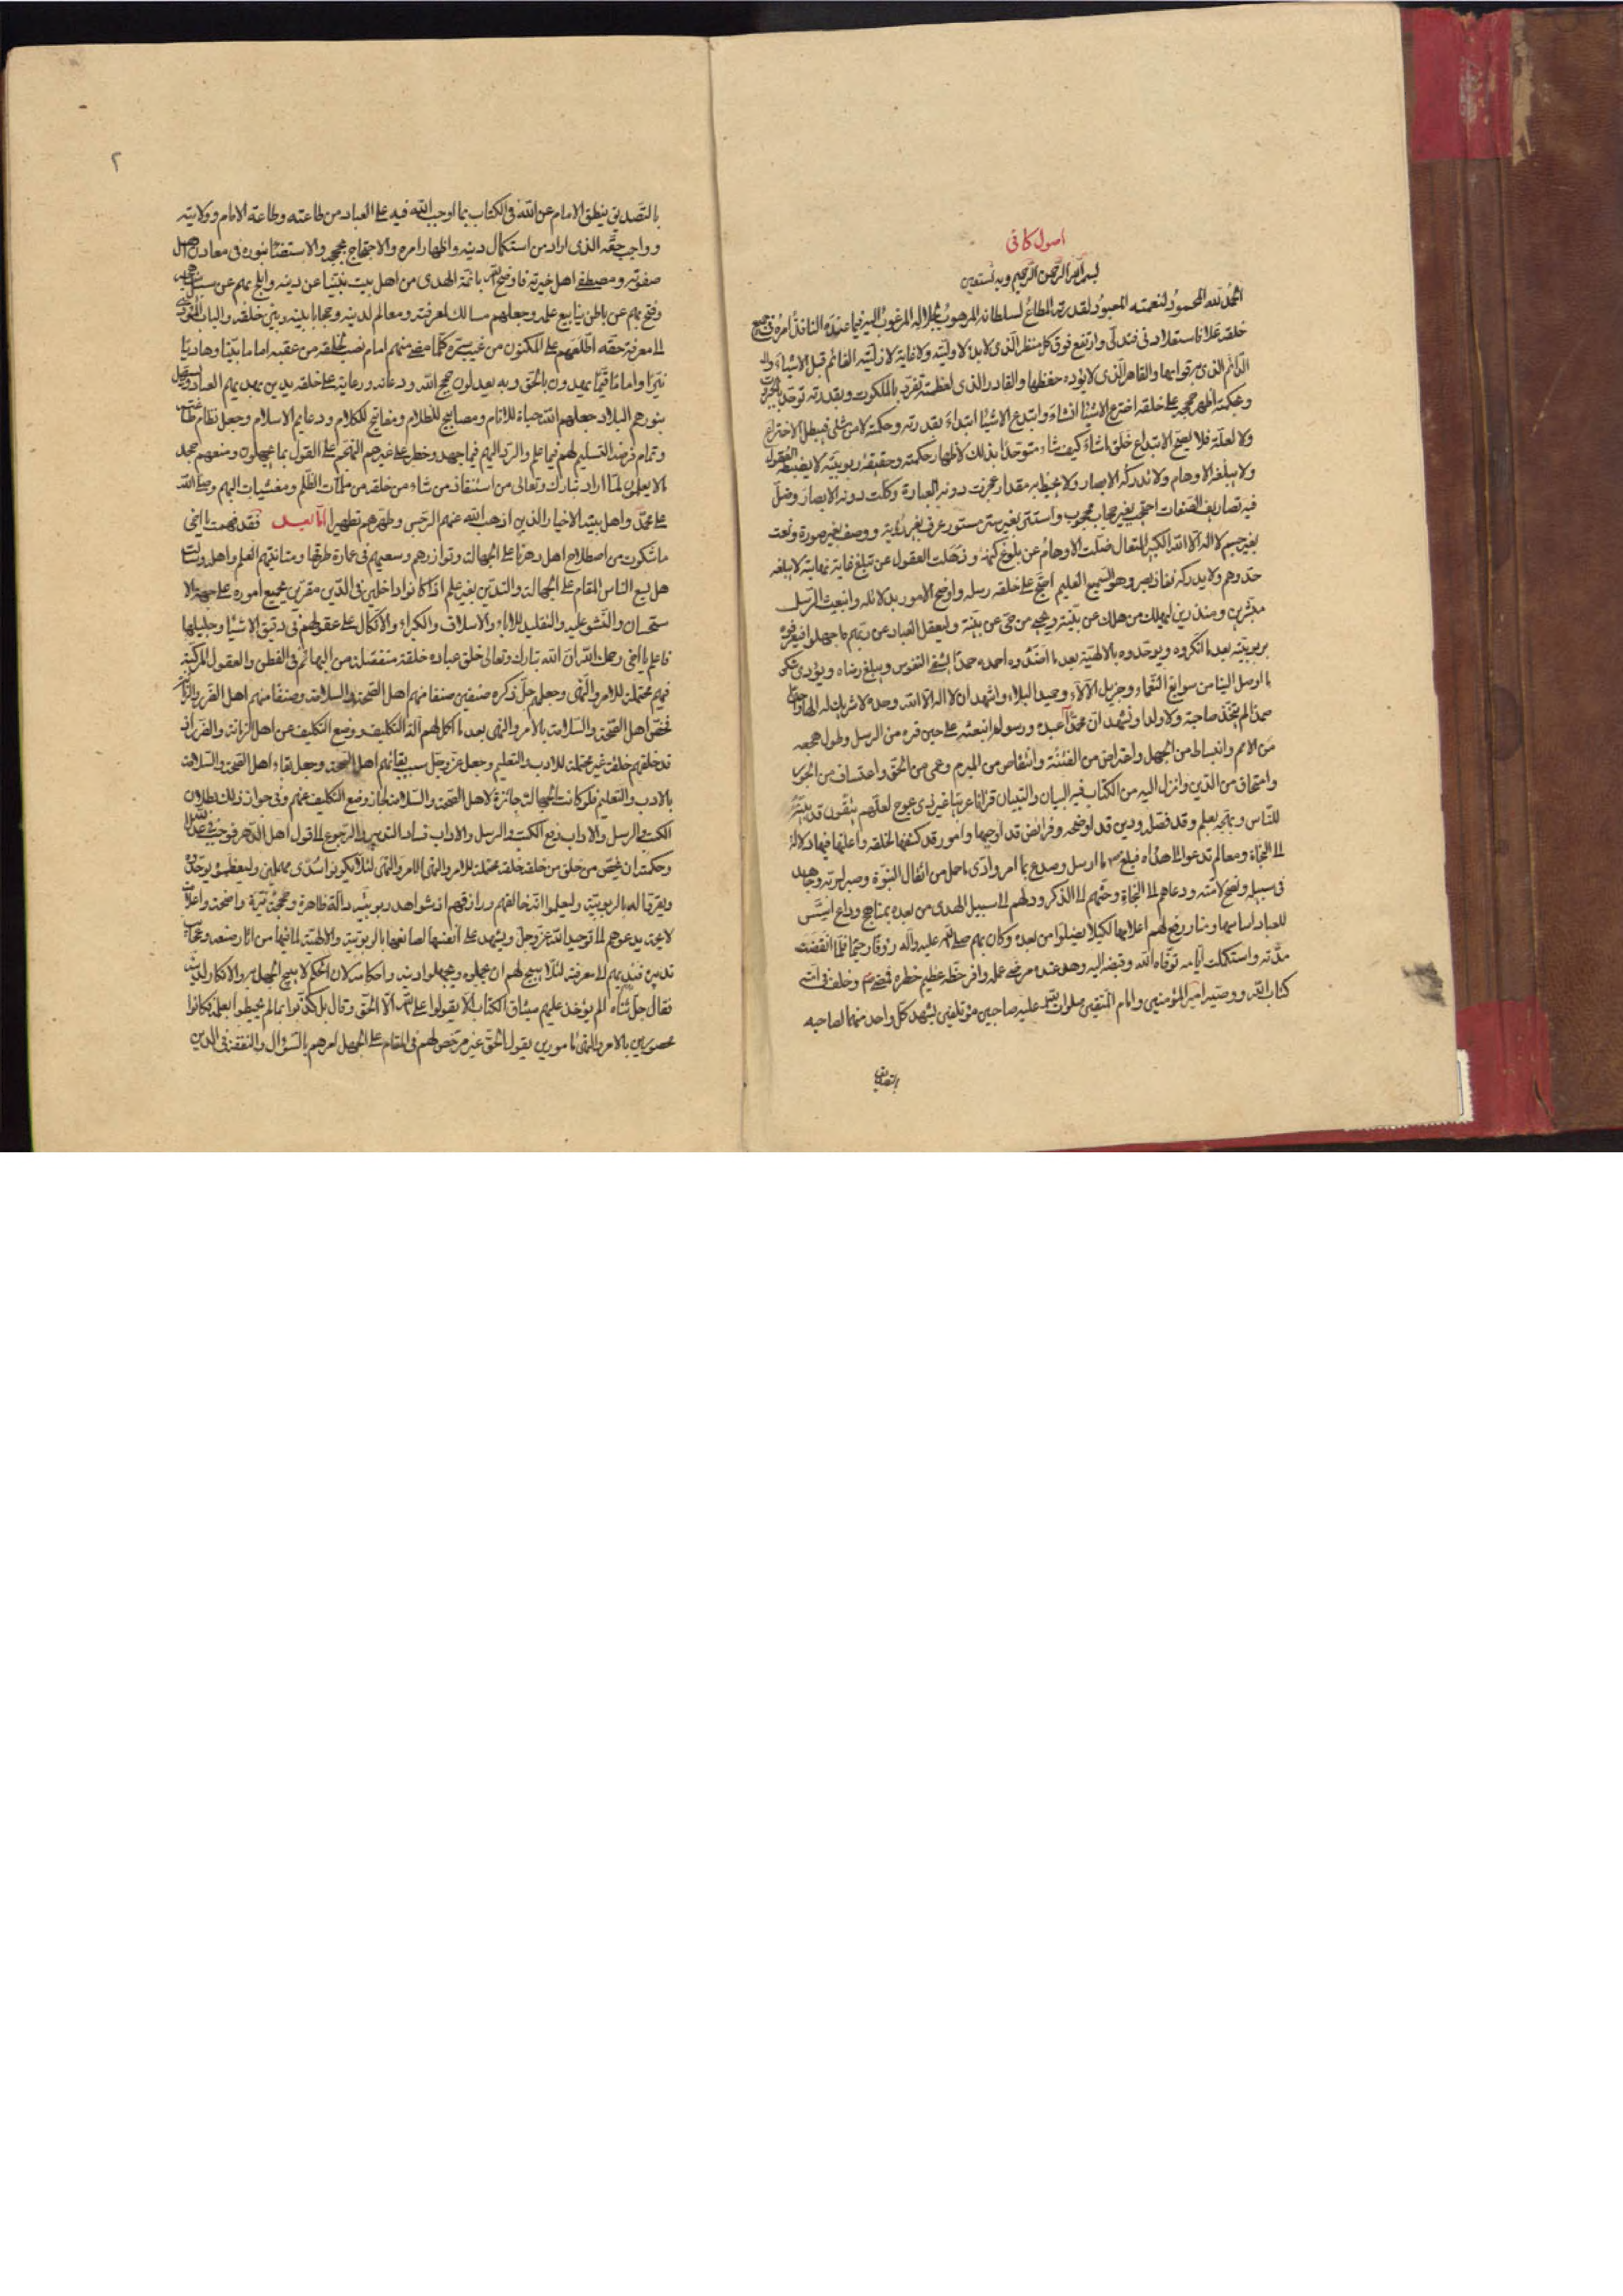 اصول كافى
بسم الله الرحمن الرحيم وبه نستعين
الحمد لله المحمود لنعمته المعبود لقدرته المطاع لسلطانه المرهوب لجلاله المرغوب اليه فيما عنده النافذ امره فى جميع
خلقه علا فاستعلا ودنى فتدلى وارتفع فوق كل منظر الذى لا بدء لاوليته ولا غاية لازليته القائم قبل الاشياء والد
الدائم الذى به قوامها والقاهر الذى لا يؤده حفظها والقادر الذى لعظمته تفرد بالملكوت وبقدرته توحد بالجبروت
وبحكمته اظهر حججه على خلقه اخترع الاشياء انشاء وابتدع الاشياء ابتداء بقدرته وحكمته لا من شئ فيبطل الاختراع
ولا لعلة فلا يصح الابتداع خلق ما شاء كيف شاء متوحدا بذلك لاظهار حكمته وحقيقة ربوبيته لا يضبطه العقول
ولا يبلغه الاوهام ولا تدركه الابصار ولا يحيط به مقدار عجزت دونه العبارة وكلت دونه الابصار وضل
فيه تصاريف الصفات احتجب بغير حجاب محجوب واستتر بغير ستر مستور عرف بغير رؤية ووصف بغير صورة ونعت
بغير جسم لا اله الا الله الكبير المتعال ضلت الاوهام عن بلوغ كنهه وذهلت العقول عن تبلغ غاية نهايته لا يبلغه
حد وهم ولا يدركه نفاذ بصر وهو السميع العليم احتج على خلقه برسله واوضح الامور بدلائله وانبعث الرسل
مبشرين ومنذرين ليهلك من هلك عن بينة ويحيى من حى عن بينة وليعقل العباد عن ربهم ما جهلوا فيعرفوه
بربوبيته بعد ما انكروه ويوحدوه بالالهية بعد ما اضدوه احمده حمدا يشفى النفوس ويبلغ رضاه ويؤدى شكر
ما اوصل الينا من سوابغ النعماء وجزيل الآلاء وجميل البلاء واشهد ان لا اله الا الله وحده لا شريك له الها واحدا
صمدا لم يتخذ صاحبة ولا ولدا ونشهد ان محمدا عبده ورسوله انبعثه على حين فترة من الرسل وطول هجعة
من الامم وانبساط من الجهل واعتراض من الفتنة وانتقاض من المبرم وعمى من الحق واعتساف من الجور
وامتحاق من الدين وانزل اليه من الكتاب فيه البيان والتبيان قرانا عربيا غير ذى عوج لعلهم يتقون قد بينه
للناس ونهجه بعلم وقد فصله ودين قد اوضحه وفرائض قد اوجبها وامور قد كشفها لخلقه واعلنها فيها دلالة
الى النجاة ومعالم تدعو الى هداه فبلغ ص ما ارسل وصدع بما امر وادى ما حمل من اثقال النبوة وصبر لربه وجاهد
فى سبيله ونصح لامته ودعاهم الى النجاة وحثهم الى الذكر ودلهم الى سبيل الهدى من بعده بمناهج ودواع اسس
للعباد اساسها ومنار رفع لهم اعلامها لكيلا يضلوا من بعده وكان بهم صلى الله عليه واله رؤفا رحيما فلما انقضت
مدته واستكملت ايامه توفاه الله وقبضه اليه وهو عند الله مرضى عمله وافر حظه عظيم خطره فمضى ص وخلف فى امته
كتاب الله ووصيه امير المؤمنين وامام المتقين صلوات الله عليه صاحبين مؤتلفين يشهد كل واحد منهما لصاحبه
بالتصديق
٢
بالتصديق ينطق الامام عن الله فى الكتاب بما اوجب الله فيه على العباد من طاعته وطاعة الامام وولايته
وواجب حقه الذى اراد من استكمال دينه واظهار امره والاحتجاج بحججه والاستضاء بنوره فى معادن اهل
صفوته ومصطفى اهل خيرته فاوضح الله بائمة الهدى من اهل بيت نبينا عن دينه وابلج بهم عن سبيل مناهجه
وفتح بهم عن باطن ينابيع علمه وجعلهم مسالك لمعرفته ومعالم لدينه وحجابا بينه وبين خلقه والباب المؤدى
الى معرفة حقه اطلعهم على المكنون من غيب سره كلما مضى منهم امام نصب لخلقه من عقبه اماما بينا وهاديا
نيرا واماما قيما يهدون بالحق وبه يعدلون حجج الله ودعاته ورعاته على خلقه يدين بهديهم العباد ويستهل
بنورهم البلاد جعلهم الله حياة للانام ومصابيح للظلام ومفاتيح للكلام ودعايم الاسلام وجعل نظام طاعته
وتمام فرضه التسليم لهم فيما علم والرد اليهم فيما جهل وحظر على غيرهم التهجم على القول بما يجهلون ومنعهم جحد
ما لا يعلمون لما اراد تبارك وتعالى من استنقاذ من شاء من خلقه من ملمات الظلم ومغشيات البهم وصلى الله
على محمد واهل بيته الاخيار الذين اذهب الله عنهم الرجس وطهرهم تطهيرا اما بعد فقد فهمت يا اخى
ما شكوت من اصطلاح اهل دهرنا على الجهالة وتوازرهم وسعيهم فى عمارة طرقها ومباينتهم العلم واهله وسئلت
هل يسع الناس المقام على الجهالة والتدين بغير علم اذا كانوا داخلين فى الدين مقرين بجميع اموره على جهة الا
ستحسان والنشو عليه والتقليد للاباء والاسلاف والكبراء والاتكال على عقولهم فى دقيق الاشياء وجليلها
فاعلم يا اخى رحمك الله ان الله تبارك وتعالى خلق عباده خلقة منفصلة من البهائم فى الفطن والعقول المركبة
فيهم محتملة للامر والنهى وجعلهم جل ذكره صنفين صنفا منهم اهل الصحة والسلامة وصنفا منهم اهل الضرر والزمانة
فخص اهل الصحة والسلامة بالامر والنهى بعد ما اكمل لهم الة التكليف ووضع التكليف عن اهل الزمانة والضرر اذ
قد خلقهم خلقة غير محتملة للادب والتعليم وجعل عز وجل سبب بقائهم اهل الصحة وجعل بقاء اهل الصحة والسلامة
بالادب والتعليم فلو كانت الجهالة جائزة لاهل الصحة والسلامة لجاز وضع التكليف عنهم وفى جواز ذلك بطلان
الكتب والرسل والاداب وفى رفع الكتب والرسل والاداب فساد التدبير والرجوع الى قول اهل الدهر فوجب فى عدل الله
وحكمته ان يخص من خلق من خلقه خلقة محتملة للامر والنهى بالامر والنهى لئلا يكونوا سدى مهملين وليعظموه ويوحدوه
ويقروا له بالربوبية وليعلموا انه خالقهم ورازقهم اذ شواهد ربوبيته دالة ظاهرة وحججه نيرة واضحة واعلامه
لائحة يدعوهم الى توحيد الله عز وجل ويشهد على انفسها لصانعها بالربوبية والالهية لما فيها من اثار صنعه وعجائب
تدبيره فندبهم الى معرفته لئلا يبيح لهم ان يجهلوه ويجهلوا دينه واحكامه لان الحكيم لا يبيح الجهل به والانكار لدينه
فقال جل ثناؤه الم يؤخذ عليهم ميثاق الكتاب الا يقولوا على الله الا الحق وقال بل كذبوا بما لم يحيطوا بعلمه فكانوا
محصورين بالامر والنهى مامورين بقول الحق غير مرخص لهم فى المقام على الجهل امرهم بالسؤال والتفقه فى الدين